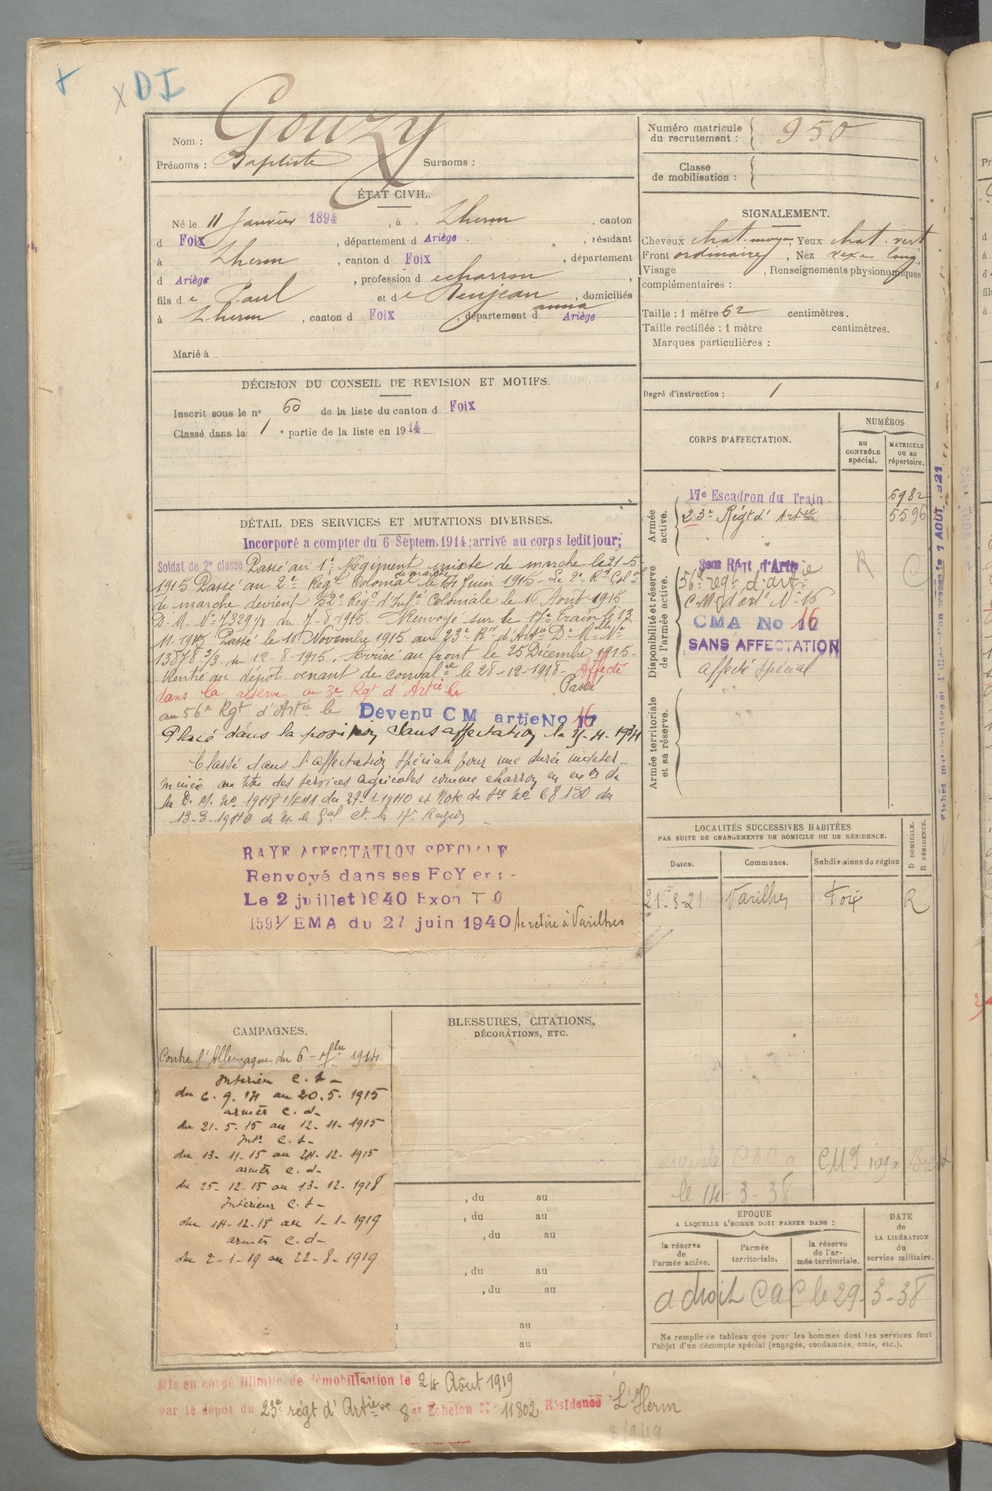 X
X DI
Nom : Gouzy
Prénoms : Baptiste Surnoms :
ÉTAT CIVIL.
Né le 11 Janvier 1894, à Lherm, canton
d Foix, département d Ariège, résidant
à Lherm, canton d Foix, département
d Ariège, profession d charron,
fils de Paul et de Benjean anna, domiciliés
à Lherm, canton d Foix, département d Ariège
Marié à
DÉCISION DU CONSEIL DE REVISION ET MOTIFS.
Inscrit sous le n° 60 de la liste du canton d Foix
Classé dans la 1e partie de la liste en 1914
DÉTAIL DES SERVICES ET MUTATIONS DIVERSES.
Incorporé a compter du 6 Septem. 1914; arrivé au corps ledit jour;
Soldat de 2e classe Passé au 1er Régiment mixte de marche le 21-5
1915 Passé au 2e Régt Colonial de marche le Juin 1915 - Le 2e Rt Col
de marche devient 52e Régt d'Infie Coloniale le Août 1915
D. M. N° 7329/1 du 7-8-1915. Renvoyé sur le 17e Train le 12
11.1915 Passé le Novembre 1915 au 23e Rt d'Artie D. Mle N°
13878 3/3 du 12-8-1915. Arrivé au front le 25 Décembre 1915-
Rentré au dépôt venant de convalce le 28-12-1918- Affecté
dans la réserve au 3e Rgt d'Artie le Passé
au 56e Rgt d'Artie le Devenu CM artie No 16
Placé dans la position sans affectation le
Classé dans l'affectation spéciale pour une durée indéter-
minée au titre des services agricoles comme charron en ex on de
la D. M. No 1948 1/EMA du 27-1-1940 et Note de No 68130 du
13-3-1940 de M. le Gal Ct la 17e Région
RAYE AFFECTATION SPECIALE
Renvoyé dans ses FoYers :-
Le 2 juillet 1940 Exon T O
1591/ EMA du 27 juin 1940 Se retire à Varilhes
CAMPAGNES.
Contre l'Allemagne du 6 - 1914
Intérieur C. S-
du 6. 9. 14 au 20. 5. 1915
armées C. d-
du 21. 5. 15 au 12. 11. 1915
Intr C. S-
du 13-11-15 au 24-12-1915
armées C. d-
du 25-12-15 au 13-12-1918
Intérieur C. S-
du 14-12-18 au 1-1-1919
armées C. d-
du 2-1-19 au 22-8-1919
BLESSURES, CITATIONS,
DÉCORATIONS, ETC.
, du au
, du au
, du au
, du au
, du au
au
au
Mis en congé illimité de démobilisation le 24 Août 1919
par le dépôt du 23e régt d'Artie 8e Echelon N° 11802 Résidence L'Herm
8/9/19
Numéro matricule
du recrutement : 950
Classe
de mobilisation :
SIGNALEMENT.
Cheveux chat. moyen, Yeux chat. vert
Front ordinaire, Nez vexe long.
Visage , Renseignements physionomiques
complémentaires :
Taille : 1 mètre 62 centimètres.
Taille rectifiée : 1 mètre centimètres.
Marques particulières :
Degré d'instruction : 1
CORPS D'AFFECTATION.
NUMÉROS
au
CONTRÔLE
spécial.
MATRICULE
ou au
répertoire.
Armée
active.
17e Escadron du Train 6982
23e Régt d'Artie 5596
Disponibilité et réserve
de l'armée active.
3eme Rért d'Artie R
56e régt d'artie
C.M. d'art. N° 15
CMA No 16
SANS AFFECTATION
affecté spécial
Armée territoriale
et sa réserve.
LOCALITÉS SUCCESSIVES HABITÉES
PAR SUITE DE CHANGEMENTS DE DOMICILE OU DE RÉSIDENCE.
Dates.
Communes.
Subdivisions de région
D DOMICILE.
R RÉSIDENCE.
21-3-21 Varilhes Foix R
le 14-3-38
EPOQUE
A LAQUELLE L'HOMME DOIT PASSER DANS :
la réserve
de
l'armée active.
l'armée
territoriale.
la réserve
de l'ar-
mée territoriale.
DATE
de
LA LIBÉRATION
du
service militaire.
a droit CaC le 29-3-38
Ne remplir ce tableau que pour les hommes dont les services font
l'objet d'un décompte spécial (engagés, condamnés, omis, etc.).